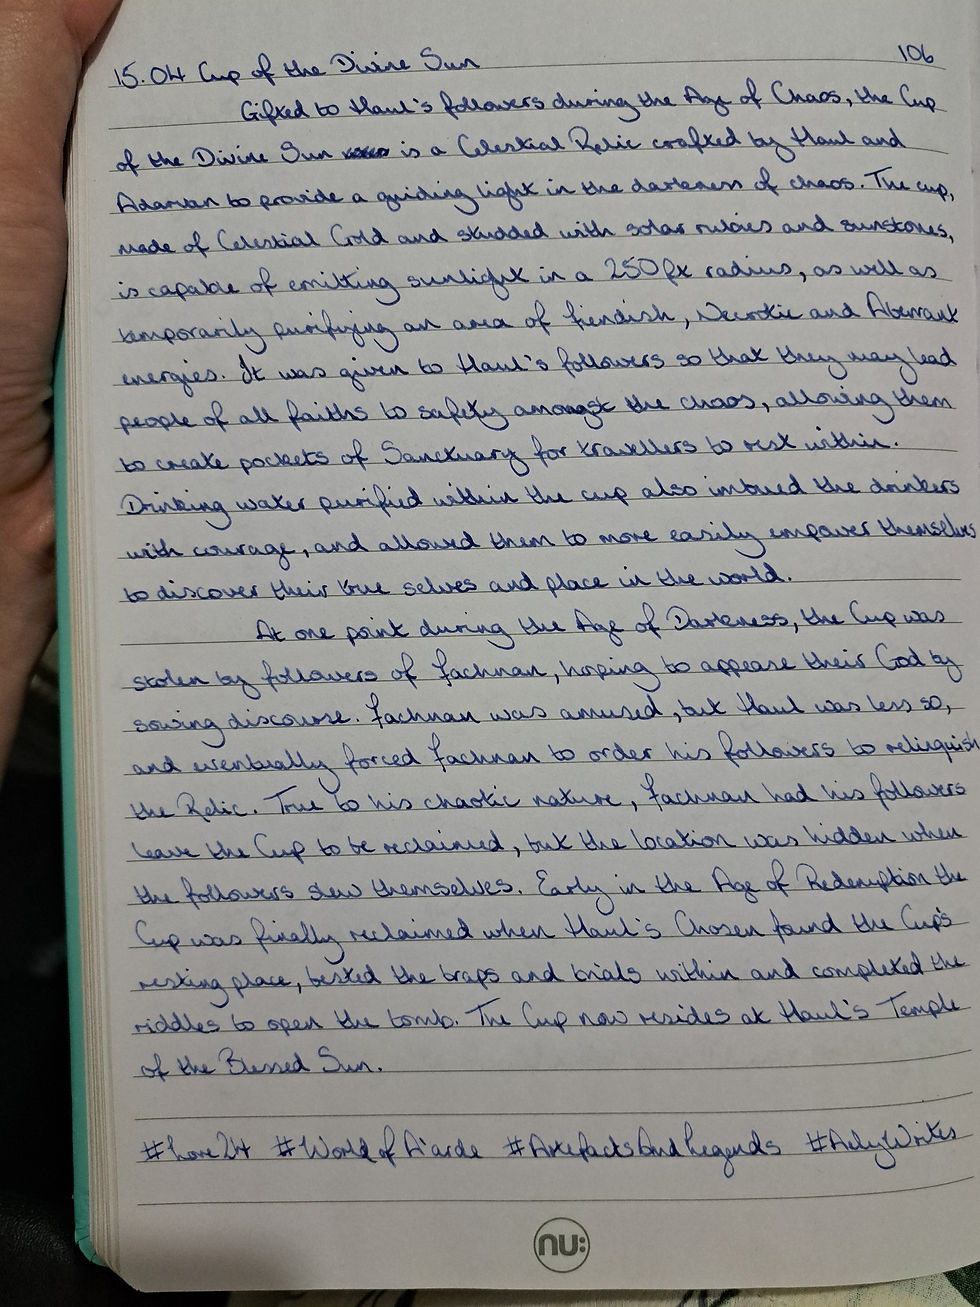 15.04 Cup of the Divine Sun
106
Gifted to Haul's followers during the Age of Chaos, the Cup
of the Divine Sun is a Celestial Relic crafted by Haul and
Adarvan to provide a guiding light in the darkness of chaos. The cup,
made of Celestial Gold and studded with solar rubies and sunstones,
is capable of emitting sunlight in a 250ft radius, as well as
temporarily purifying an area of fiendish, Necrotic and Aberrant
energies. It was given to Haul's followers so that they may lead
people of all faiths to safety amongst the chaos, allowing them
to create pockets of Sanctuary for travellers to rest within.
Drinking water purified within the cup also imbued the drinkers
with courage, and allowed them to more easily empower themselves
to discover their true selves and place in the world.
At one point during the Age of Darkness, the Cup was
stolen by followers of Fachnan, hoping to appease their God by
sowing discourse. Fachnan was amused, but Haul was less so,
and eventually forced Fachnan to order his followers to relinquish
the Relic. True to his chaotic nature, Fachnan had his followers
leave the Cup to be reclaimed, but the location was hidden when
the followers slew themselves. Early in the Age of Redemption the
Cup was finally reclaimed when Haul's Chosen found the Cup's
resting place, bested the traps and trials within and completed the
riddles to open the tomb. The Cup now resides at Haul's Temple
of the Blessed Sun.
#Lore24 #World of A'arde #ArtefactsAndLegends #AdyWrites
nu: